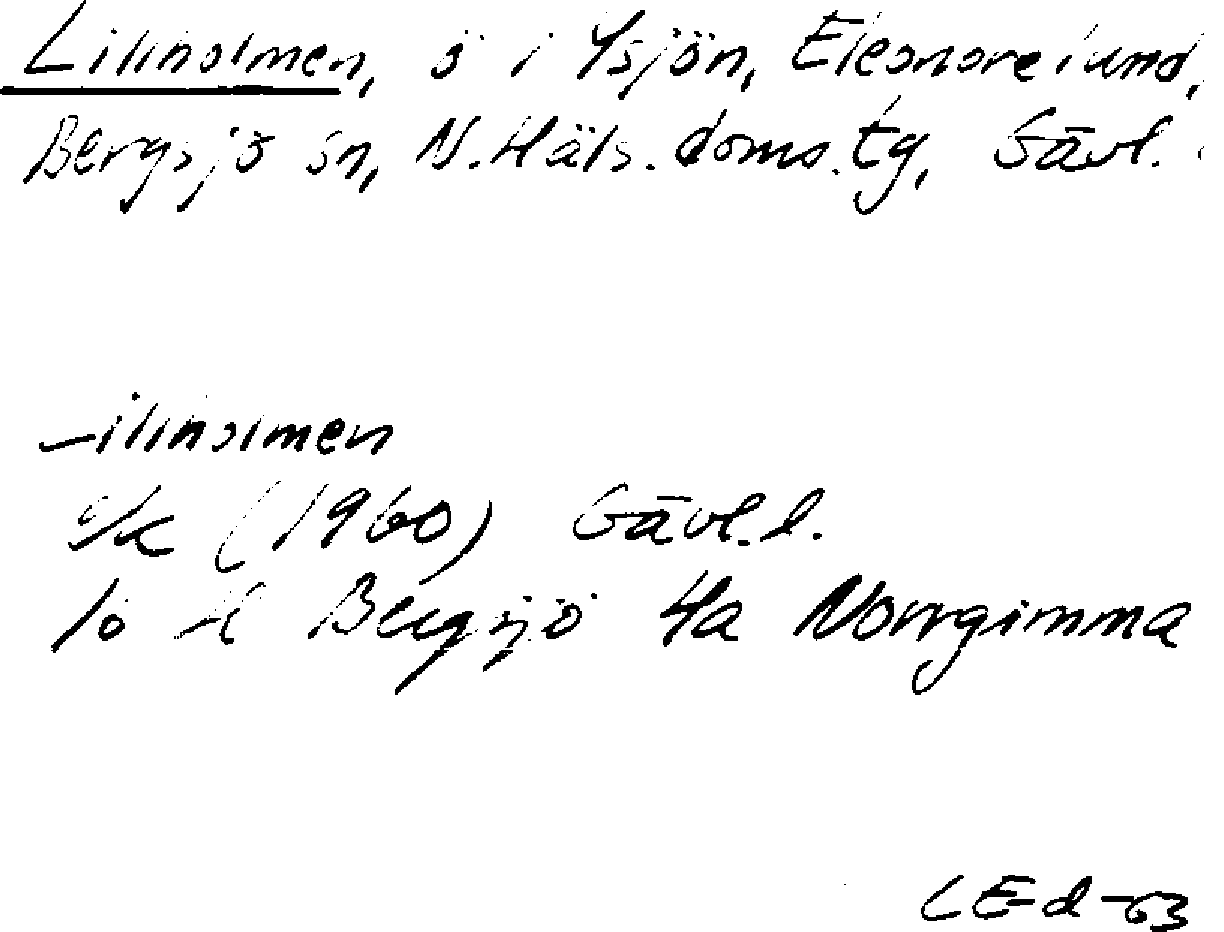 Lillholmen, ö i Ysjön, Eleonorelund,
Bergsjö sn, N. Häls. doms. tg, Gävl.
Lillholmen
e/k (1960) Gävl. l.
10 H Bergsjö 4a Norrgimma
LE-d -63